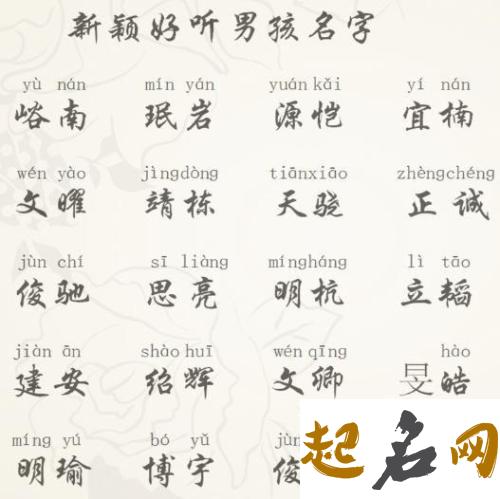 新颖好听男孩名字
yù nán mín yán yuán kǎi yí nán
峪南 珉岩 源恺 宜楠
wén yào jìngdòng tiānxiāo zhèngchéng
文曜 靖栋 天骁 正诚
jùn chí sī liàng mínghá​ng lì tāo
俊驰 思亮 明杭 立韬
jiàn ān shào huī wén qīng hào
建安 绍辉 文卿 旻皓
míng yú bó yǔ jùn
明瑜 博宇 俊
起名网